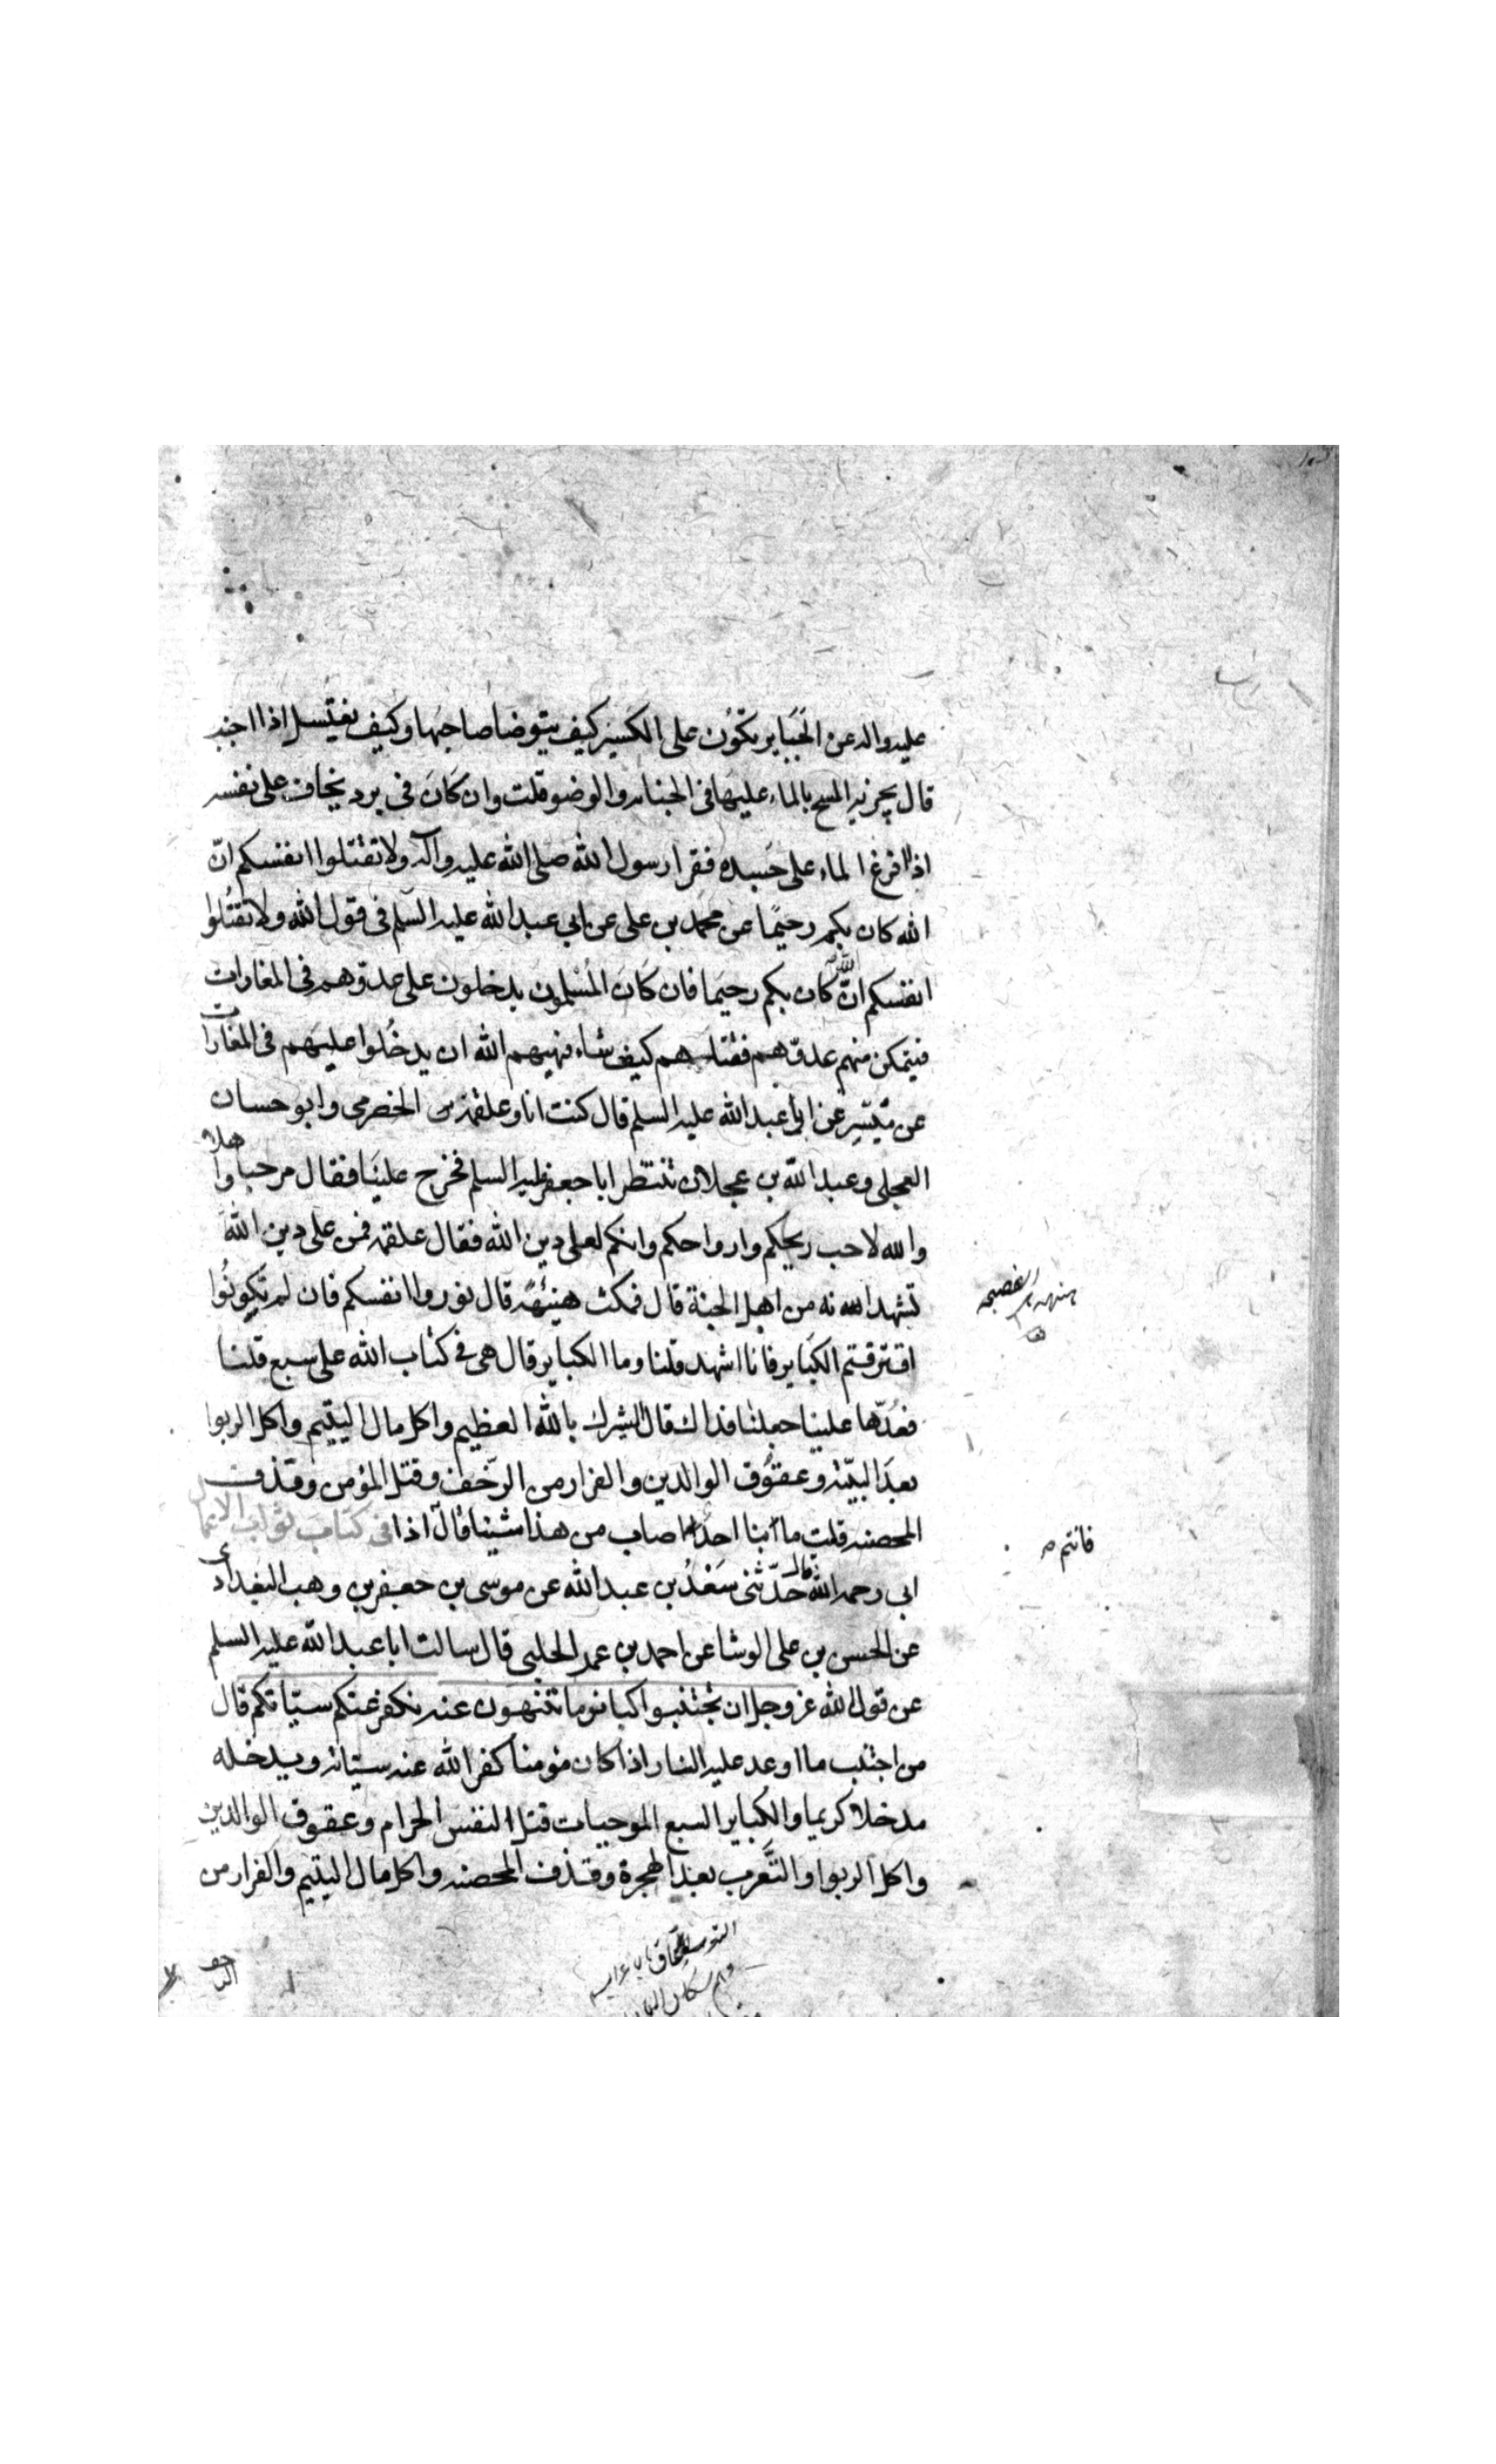 عليه واله عن الجَبَاير تكوُن على الكسير كيف يتوضا صاحبها وكيف يغتسل اذا اجنب
قال يجزيه المسح بالماء عليها في الجنابه والوضو قلت وان كان في برد يخاف على نفسه
اذا افرغ الماء على جَسده فقرا رسول الله صلى الله عليه وآله ولا تقتلوا انفسكم انّ
الله كان بكم رحيمًا عن محمد بن على عن ابي عبد الله عليه السلم في قول الله ولا تقتُلوا
انفسكم انّ الله كان بكم رحيما فان كَانَ المُسْلمون يدخلون على عدوّهم في المغارات
فيتمكن منهم عدوّهم فقتلهم كيف شاء فنهيهم الله ان يدخُلوا عليهم في المغارات
عن ميَسّرِ عن ابي عبد الله عليه السلم قال كنت انا وعلقمة الحضرمى وابو حسان
العجلى وعبد الله بن عجلان ننتظر ابا جعفر عليه السلم فخرج علينَا فقال مرحبا واهلا
والله لاحب ريحكم وارواحكم وانكم لعلى دين الله فقال علقمه فمن على دين الله
تشهد انه من اهل الجنة قال فمكث هنيئهةً قال نوروا انفسكم فان لم تكونُوا
اقترقتم الكبَاير فانا اشهد قلنا وما الكباير قال هي في كتاب الله على سبع قلنا
فعُدّها علينا جعلنا فداك قال الشرك بالله العظيم واكل مال اليتيم واكل الربوا
بعدَ البيّنة وعقوُق الوالدين والفرار من الزحف وقتل المؤمن وقذف
المحصنه قلت ما منا احدًا اصاب من هذا شيئا قال اذا في كتاب ثواب الاعمال
ابى رحمه الله قال حَدّثنى سَعْدُ بن عبد الله عن موسى بن جعفر بن وهب البغدادى
عن الحسن بن على الوشا عن احمد بن عمر الحلبى قال سالت ابا عبد الله عليه السلم
عن قول الله عز وجل ان تجتنبوا كبائر ما تنهون عنه نكفر عنكم سيّاتكم قال
من اجتنب ما اوعد عليه النار اذا كان مؤمنا كفر الله عنه سيئاته ويدخله
مدخلا كريما والكُباير السبع الموجبات قتل النفس الحرام وعقوق الوالدين
واكل الربوا والتَّعرب بعد الهجرة وقذف المحصنه واكل مال اليتيم والفرار من
فانتم